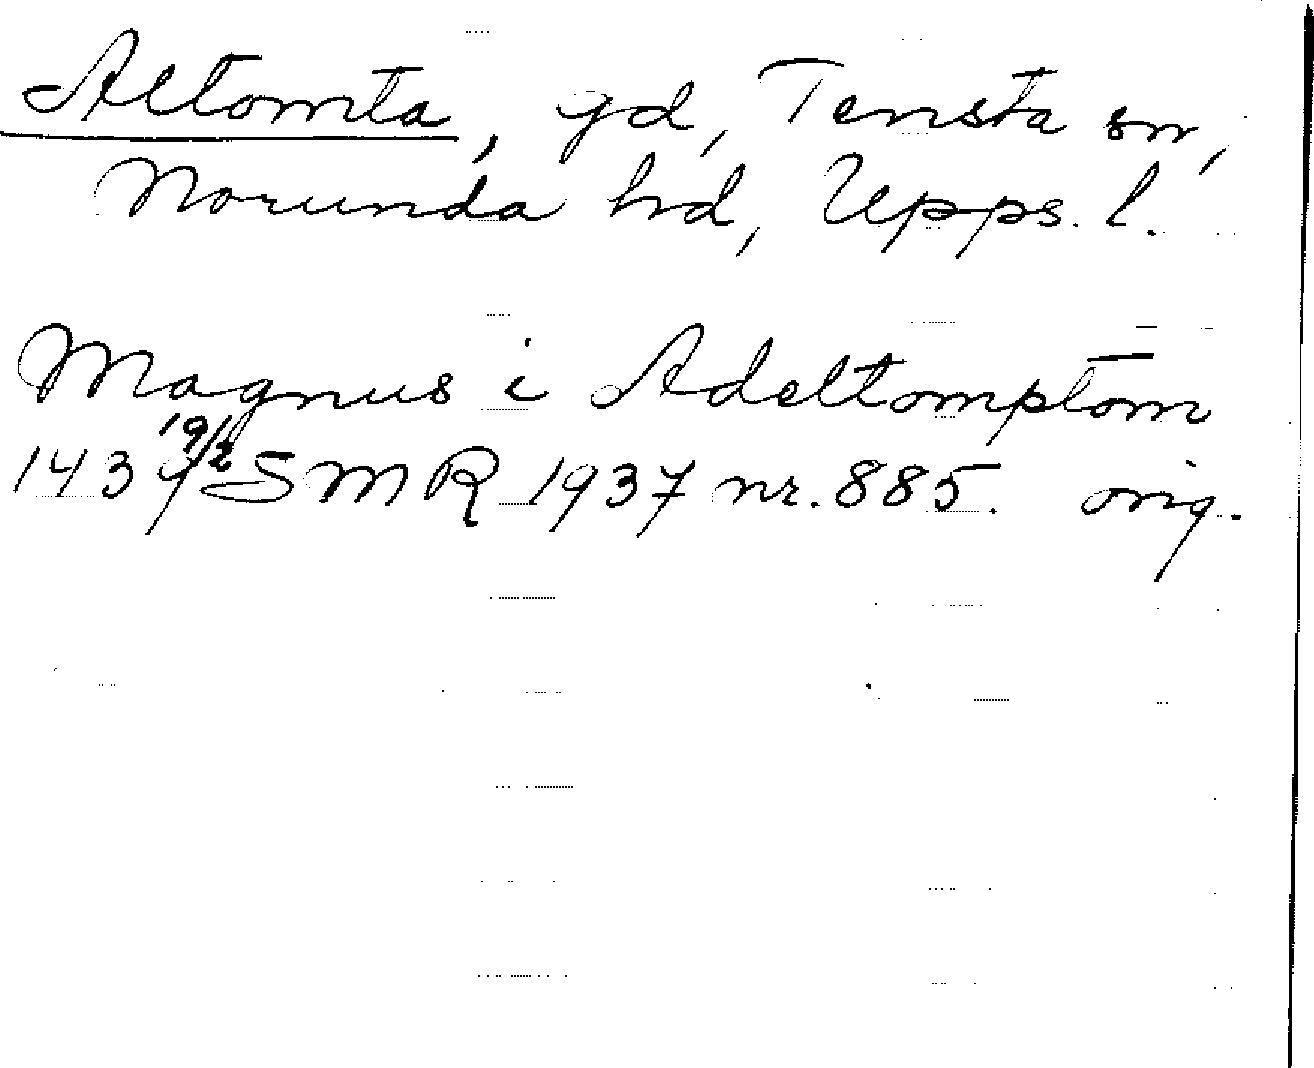 Altomta, gd, Tensta sn,
Norunda hd, Upps. l.
Magnus i Adeltomptom
1437 19/2 SMR 1937 nr. 885. orig.